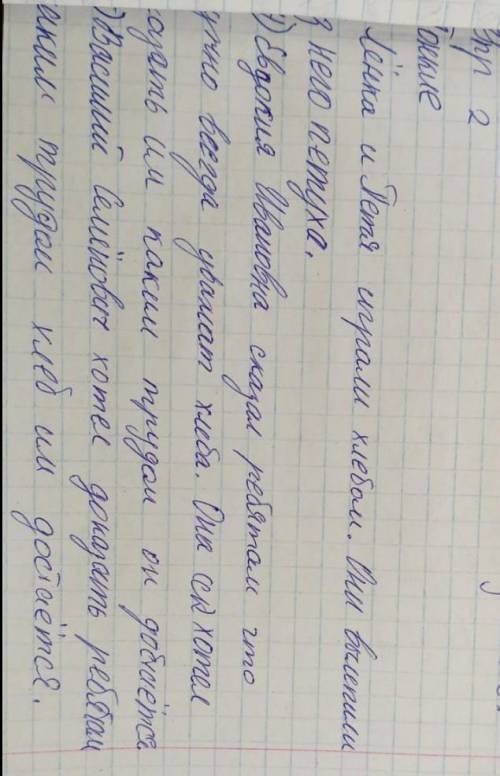 пр 2
Лёнка и Петя играли хлебом. Они вылепили
з него петуха.
1) Евдокия Ивановна сказал ребятам что
ужно всегда уважат хлеба. Она хотел
азать им каким трудом он добыётся
) Василий Семёнович хотел доказать ребятам
аким трудом хлеб им достаётся.